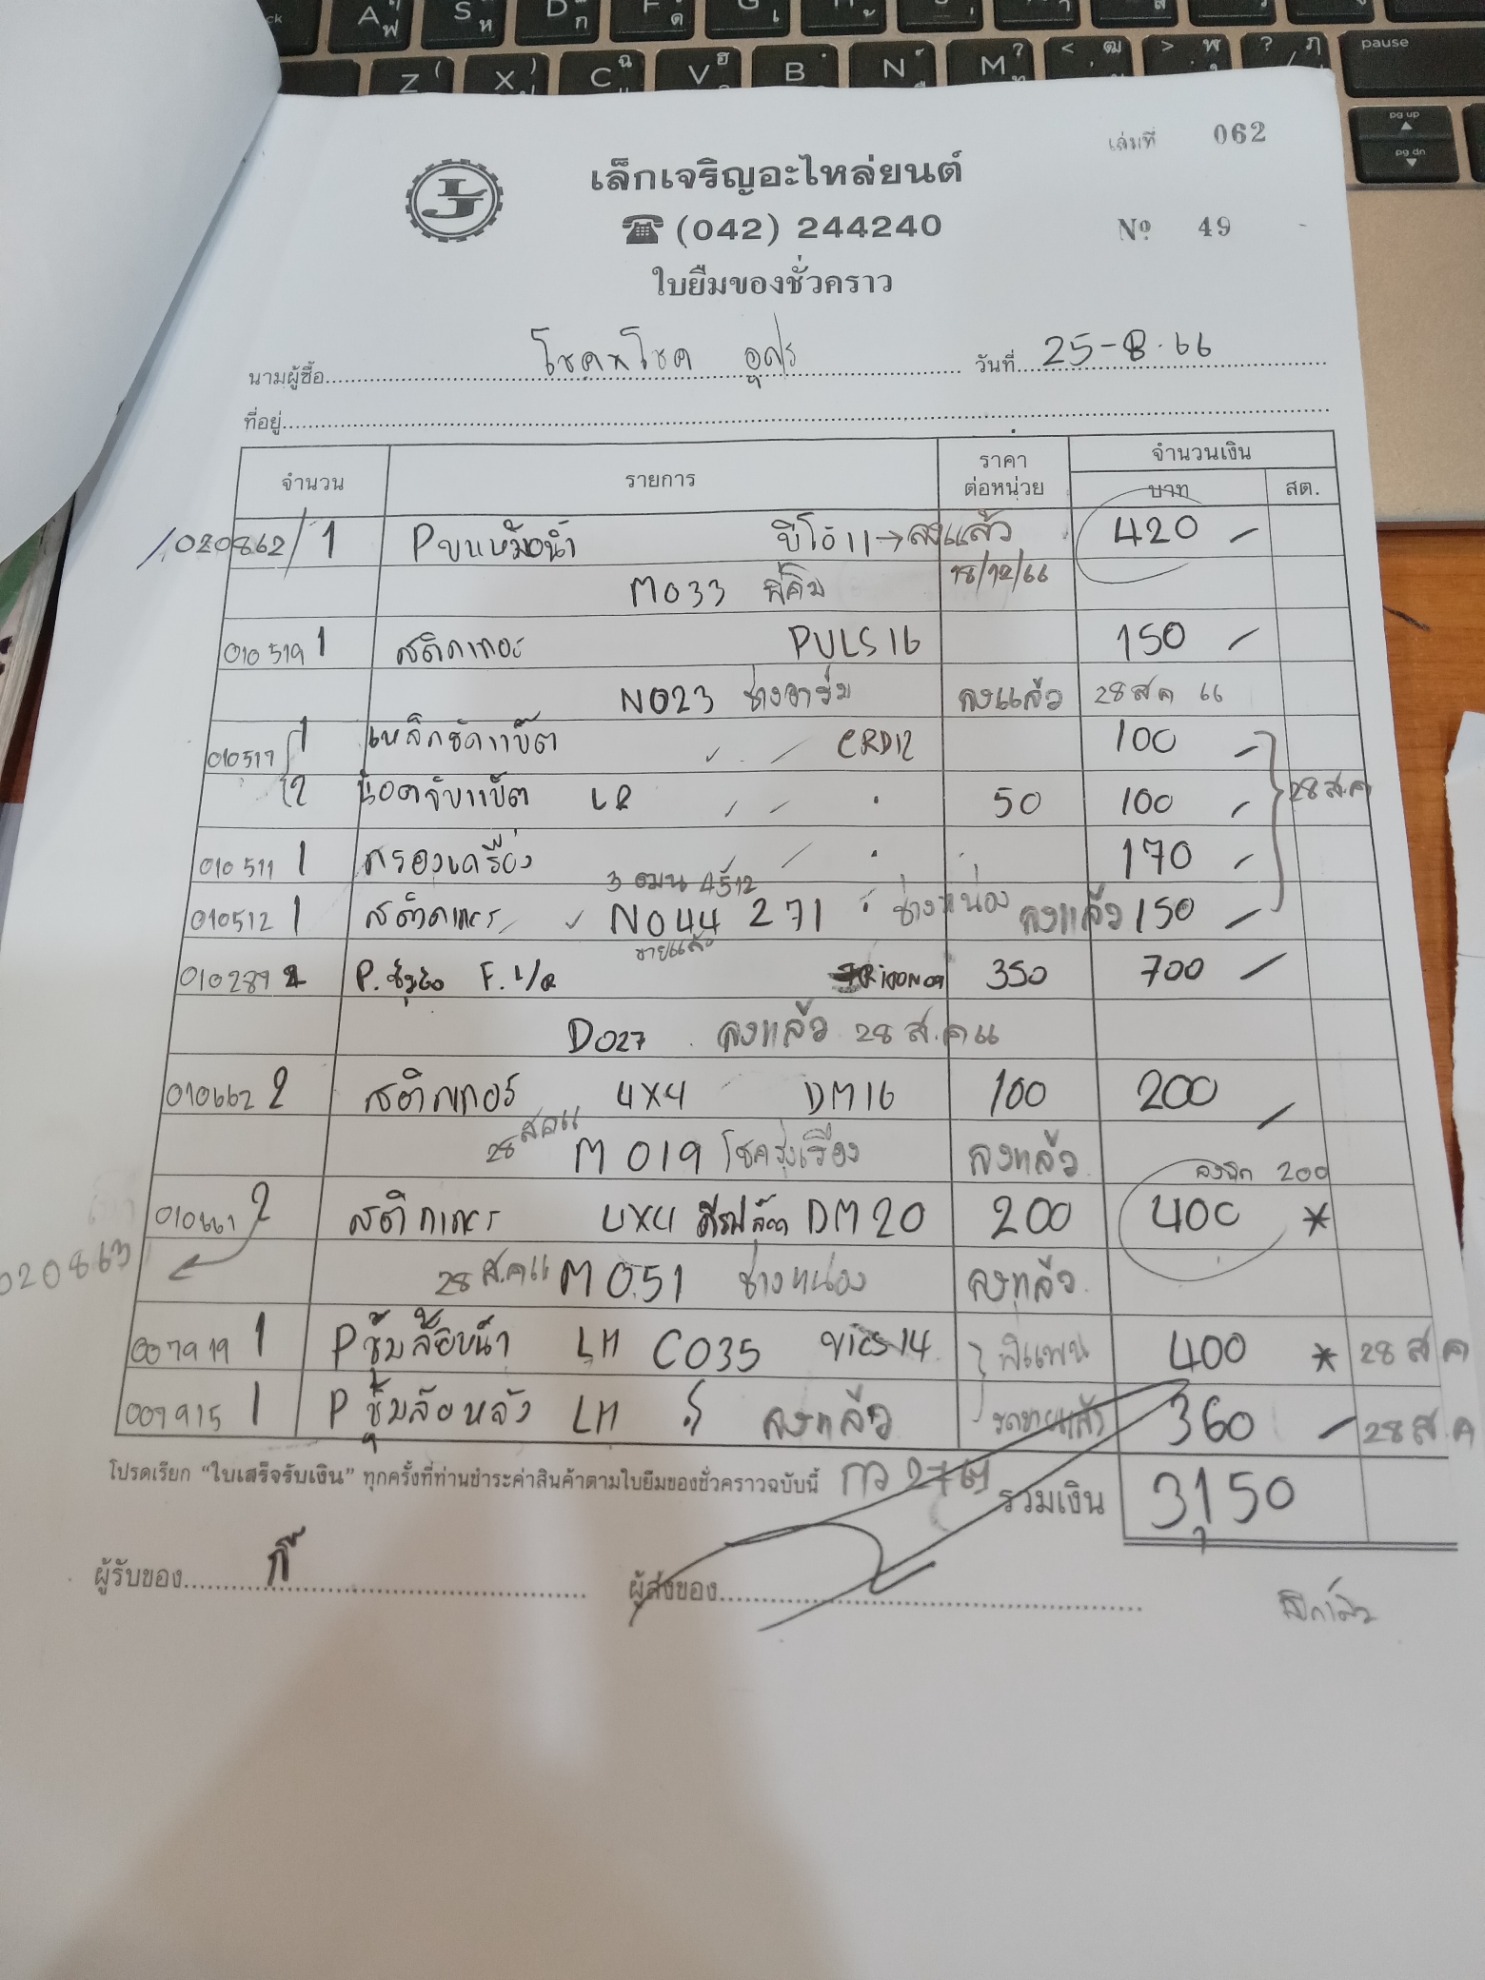 เล่มที่ 062
เล็กเจริญอะไหล่ยนต์
LJ
(042) 244240
Nº 49
ใบยืมของชั่วคราว
นามผู้ซื้อ โชคxโชค อุดร วันที่ 25-8-66
ที่อยู่
จำนวน รายการ ราคาต่อหน่วย จำนวนเงิน
บาท สต.
020862/1 Pบนหม้อน้ำ บีโอ้11→ลงแล้ว 420 -
M033 พี่คิม 18/12/66
010519 1 สติกเกอร์ PULS16 150 -
N023 ลงแล้ว 28 สค 66
010517 1 เหล็กรัดแบ็ต CRD12 100 -
2 น็อตจับแบ็ต LR 50 100 - 28 ส.ค
010511 1 กรองเครื่อง 170 -
010512 1 สติกเกอร์ N044 271 ช่างหน่อง ลงแล้ว 150 -
ขายแล้ว
010289 2 F. L/R 350 700 -
D027 ลงแล้ว 28 ส.ค 66
010662 2 สติกเกอร์ 4X4 DM16 100 200 -
28 สค66 M019 โชครุ่งเรือง ลงแล้ว
ลงผิด 200
010661 2 สติกเกอร์ 4X4 DM20 200 400 *
020863 28 ส.ค66 M051 ช่างหน่อง ลงแล้ว
007919 1 Pซุ้มล้อหน้า LH C035 Vios14 พี่แพน 400 * 28 ส ค
007915 1 Pซุ้มล้อหลัง LH ลงแล้ว รถขายแล้ว 360 - 28 ส.ค
โปรดเรียก "ใบเสร็จรับเงิน" ทุกครั้งที่ท่านชำระค่าสินค้าตามใบยืมของชั่วคราวฉบับนี้ รวมเงิน 3,150
ผู้รับของ กี้ ผู้ส่งของ
A S D F G
Z X C V B N M
pause
pg up
pg dn